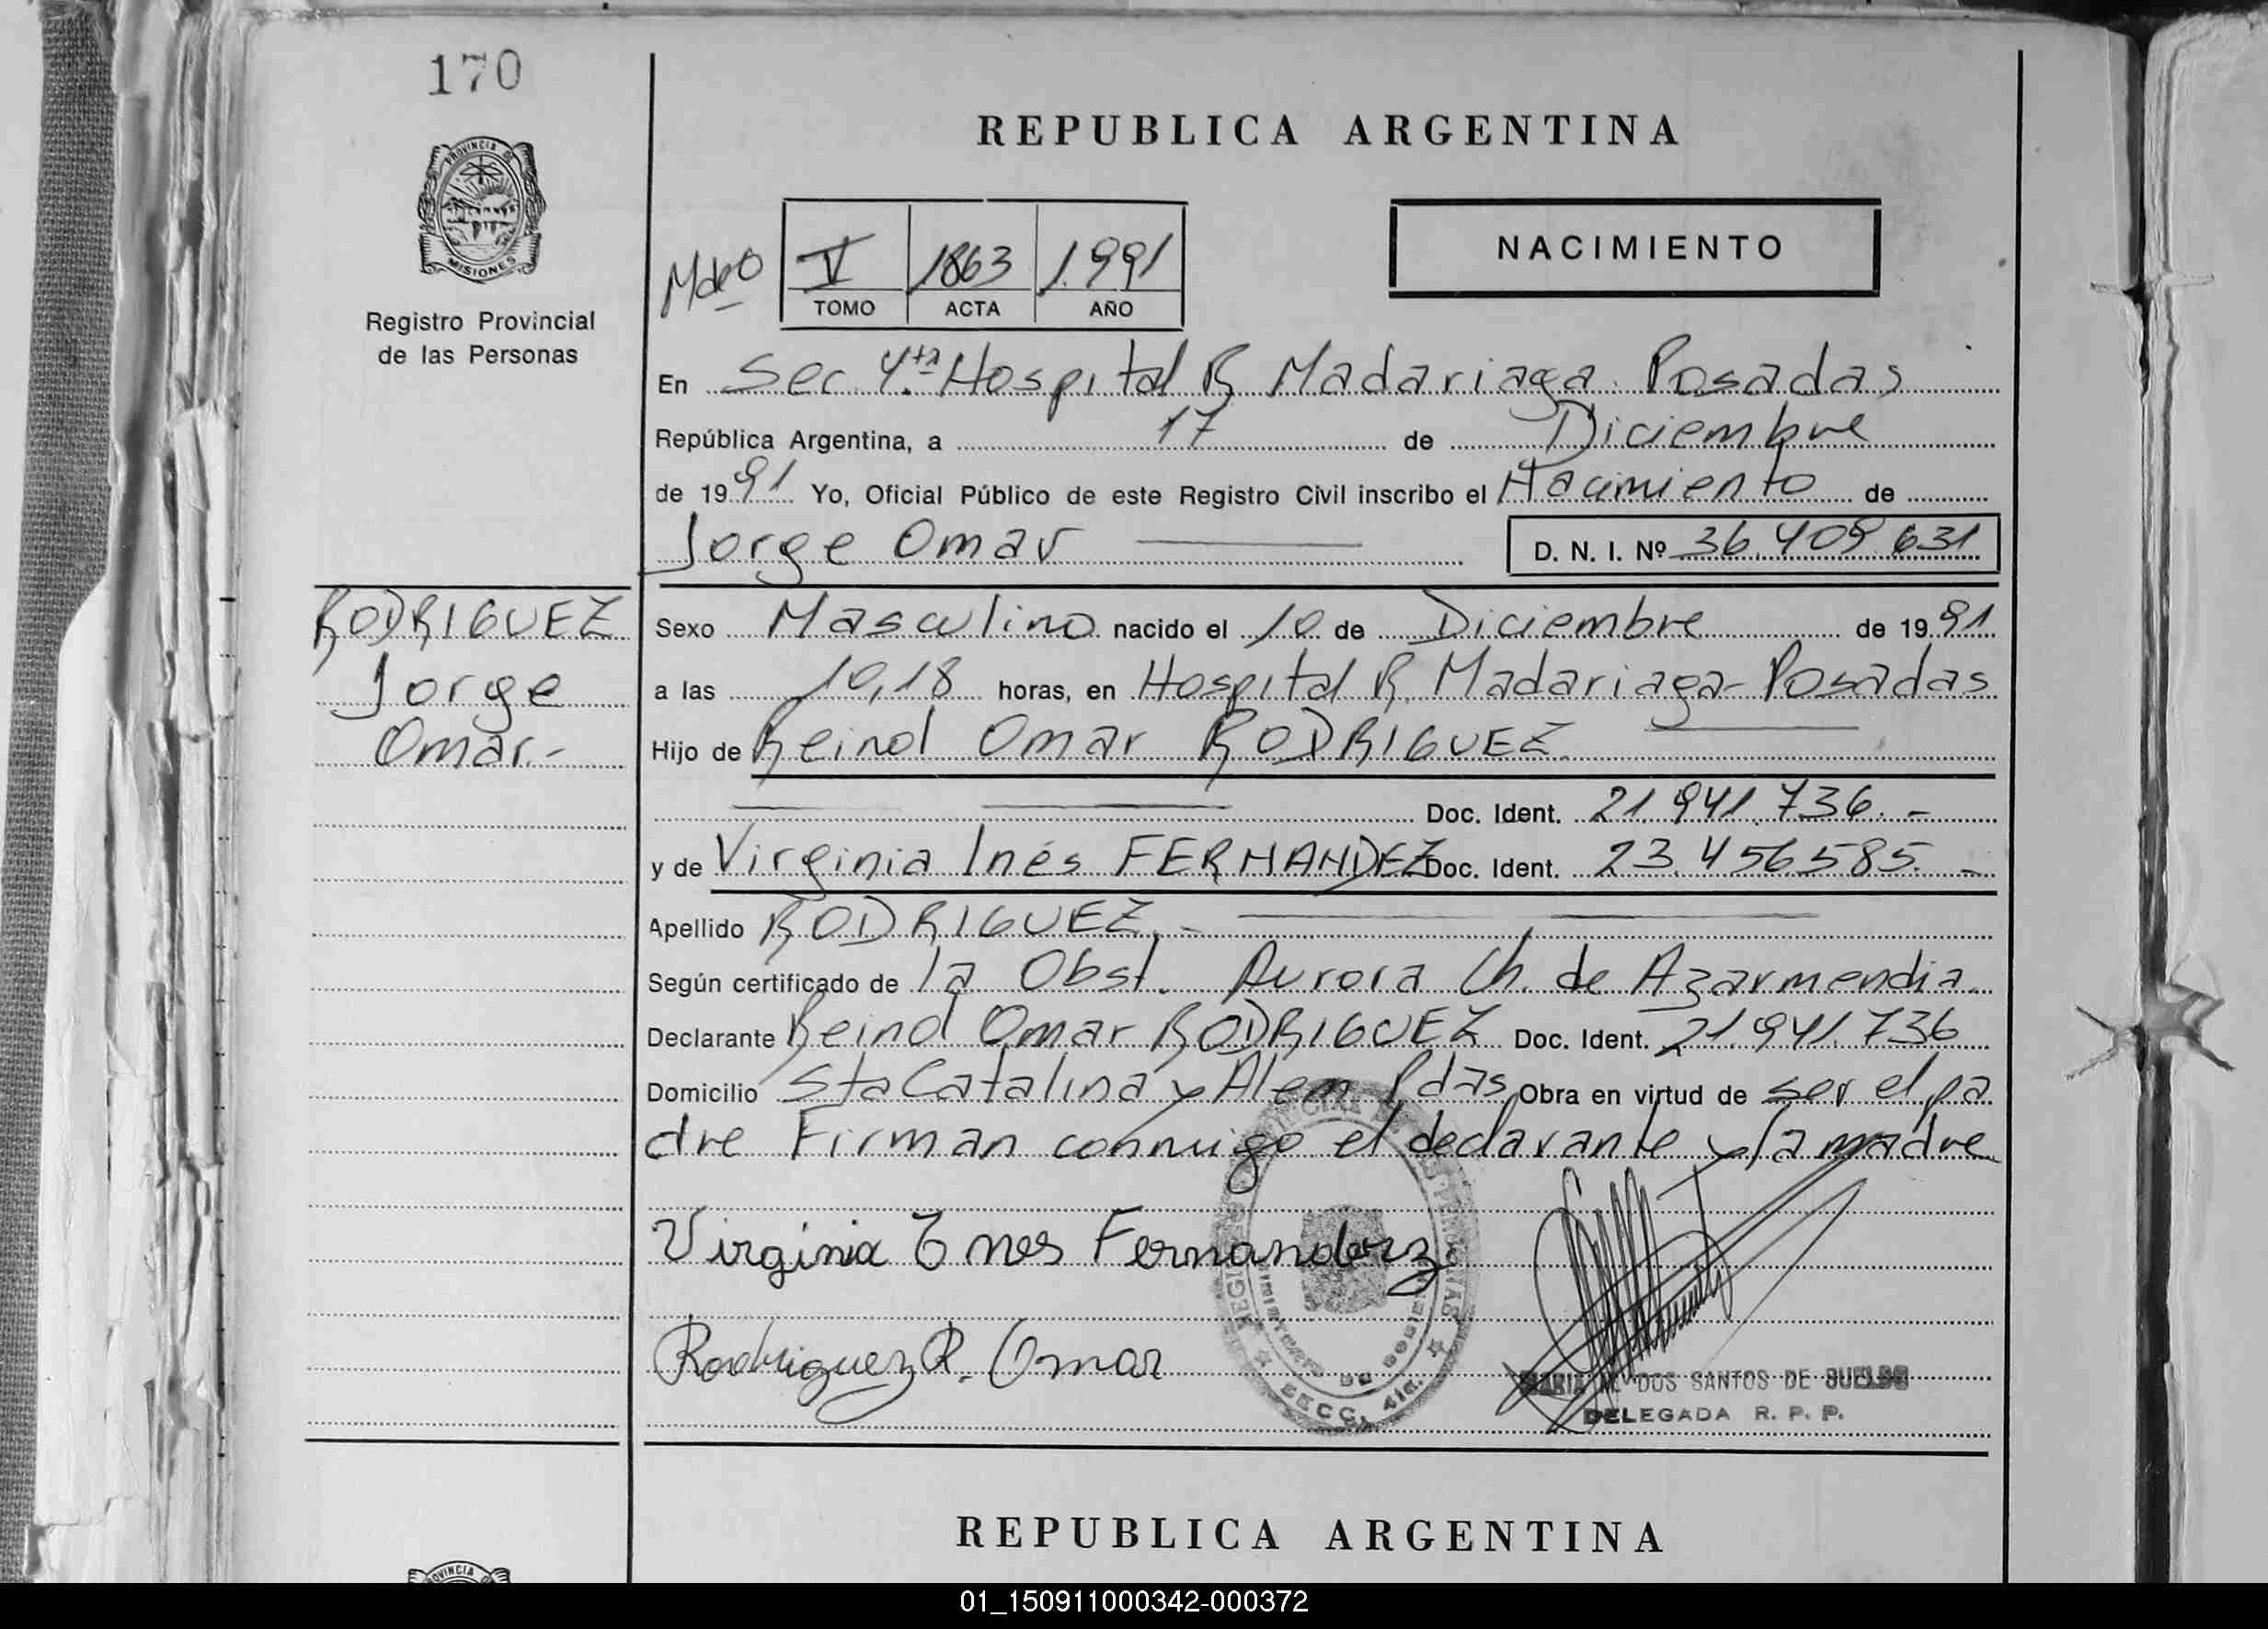 170
PROVINCIA DE
MISIONES
Registro Provincial
de las Personas
REPUBLICA ARGENTINA
V 1863 1.991
TOMO ACTA AÑO
NACIMIENTO
En Sec. 4.ta Hospital R Madariaga Posadas
República Argentina, a 17 de Diciembre
de 1991 Yo, Oficial Público de este Registro Civil inscribo el Nacimiento de
Jorge Omar
D. N. I. Nº 36.409.631
RODRIGUEZ
Jorge
Omar.-
Sexo Masculino nacido el 10 de Diciembre de 1991
a las 10,18 horas, en Hospital R. Madariaga - Posadas
Hijo de Reinol Omar RODRIGUEZ
Doc. Ident. 21.941.736.-
y de Virginia Inés FERNANDEZ Doc. Ident. 23.456585.-
Apellido RODRIGUEZ.-
Según certificado de la Obst. Aurora Ch. de Azarmendia
Declarante Reinol Omar RODRIGUEZ Doc. Ident. 21.941.736
Domicilio Sta Catalina y Alem Pdas Obra en virtud de ser el pa
dre Firman conmigo el declarante y la madre
Virginia Ines Fernanderz
Rodriguez R. Omar
SECC. 4ta.
DOS SANTOS DE
DELEGADA R. P. P.
REPUBLICA ARGENTINA
PROVINCIA
01_150911000342-000372